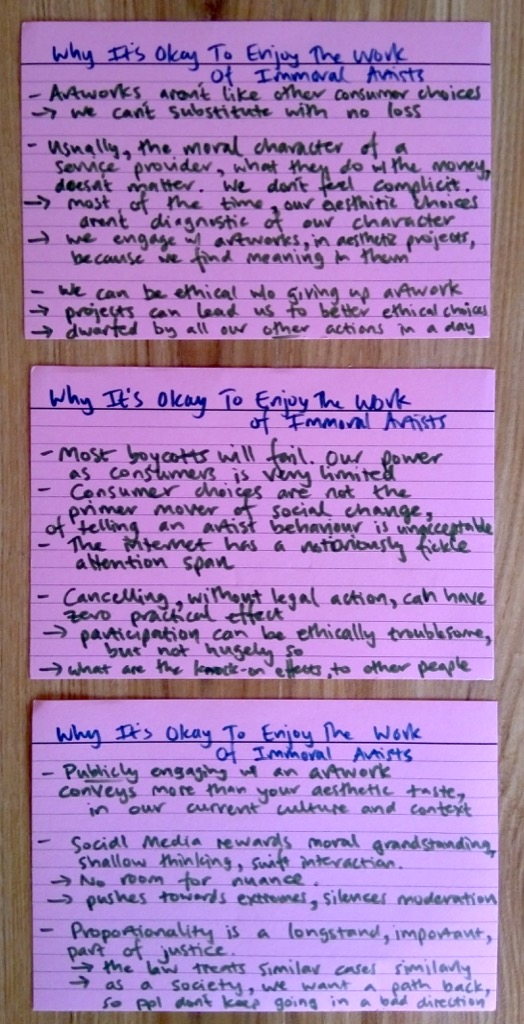 Why It's Okay To Enjoy The Work
Of Immoral Artists
- Artworks aren't like other consumer choices
→ we can't substitute with no loss
- Usually, the moral character of a
service provider, what they do w/ the money,
doesn't matter. We don't feel complicit.
→ most of the time, our aesthitic choices
arent diagnostic of our character
→ we engage w/ artworks, in aesthetic projects,
because we find meaning in them
- We can be ethical w/o giving up artwork
→ projects can lead us to better ethical choices
→ dwarfed by all our other actions in a day
Why It's Okay To Enjoy The Work
of Immoral Artists
- Most boycotts will fail. Our power
as consumers is very limited
- Consumer choices are not the
primer mover of social change,
of telling an artist behaviour is unacceptable
- The internet has a notoriously fickle
attention span
- Cancelling, without legal action, can have
zero practical effect
→ participation can be ethically troublesome,
but not hugely so
→ what are the knock-on effects, to other people
Why It's Okay To Enjoy The Work
Of Immoral Artists
- Publicly engaging w/ an artwork
conveys more than your aesthetic taste,
in our current culture and context
- Social Media rewards moral grandstanding,
shallow thinking, swift interaction.
→ No room for nuance.
→ pushes towards extremes, silences moderation
- Proportionality is a longstand, important,
part of justice.
→ the law treats similar cases similarly
→ as a society, we want a path back,
so ppl don't keep going in a bad direction